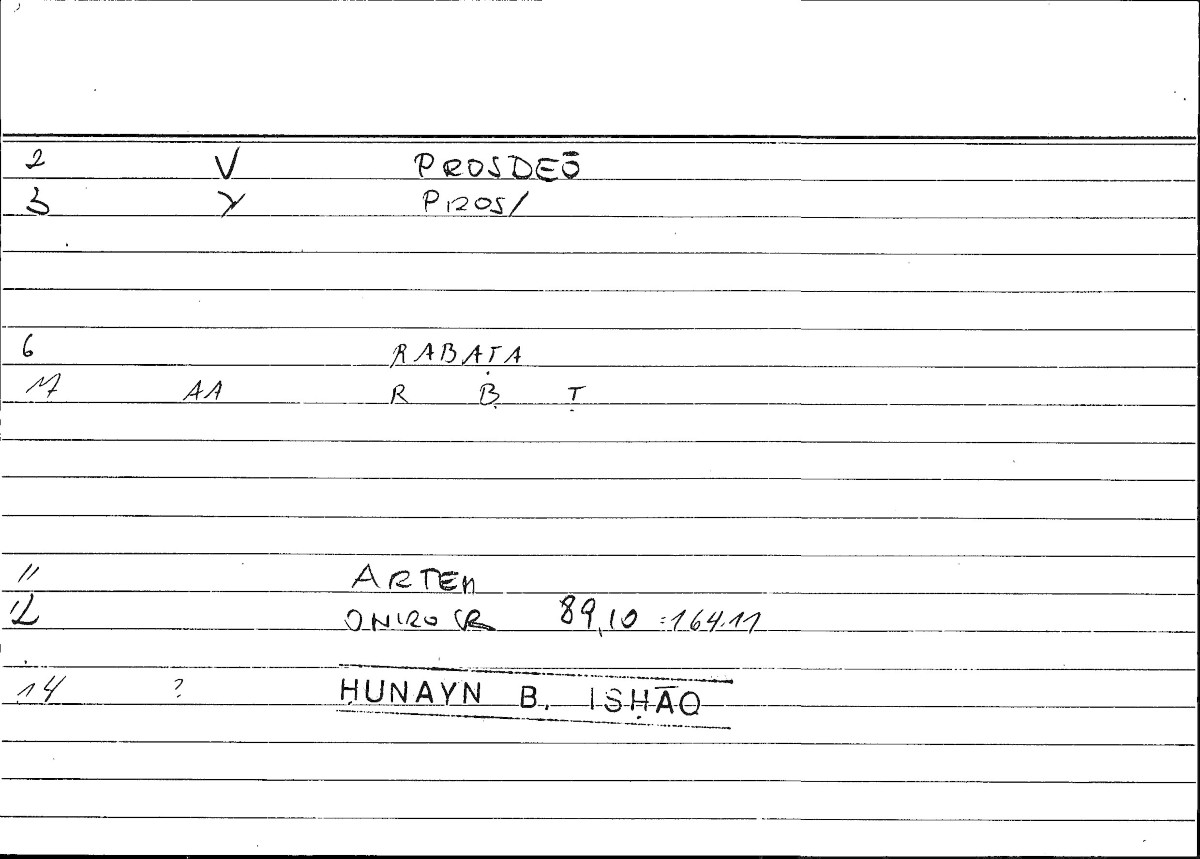 2 V PROSDEŌ
3 Y PROS/
6 RABAṬA
17 AA R Ḅ Ṭ
11 ARTEM
12 ONIROCR 89,10 =164.11
14 ? ḤUNAYN B. ISḤĀQ